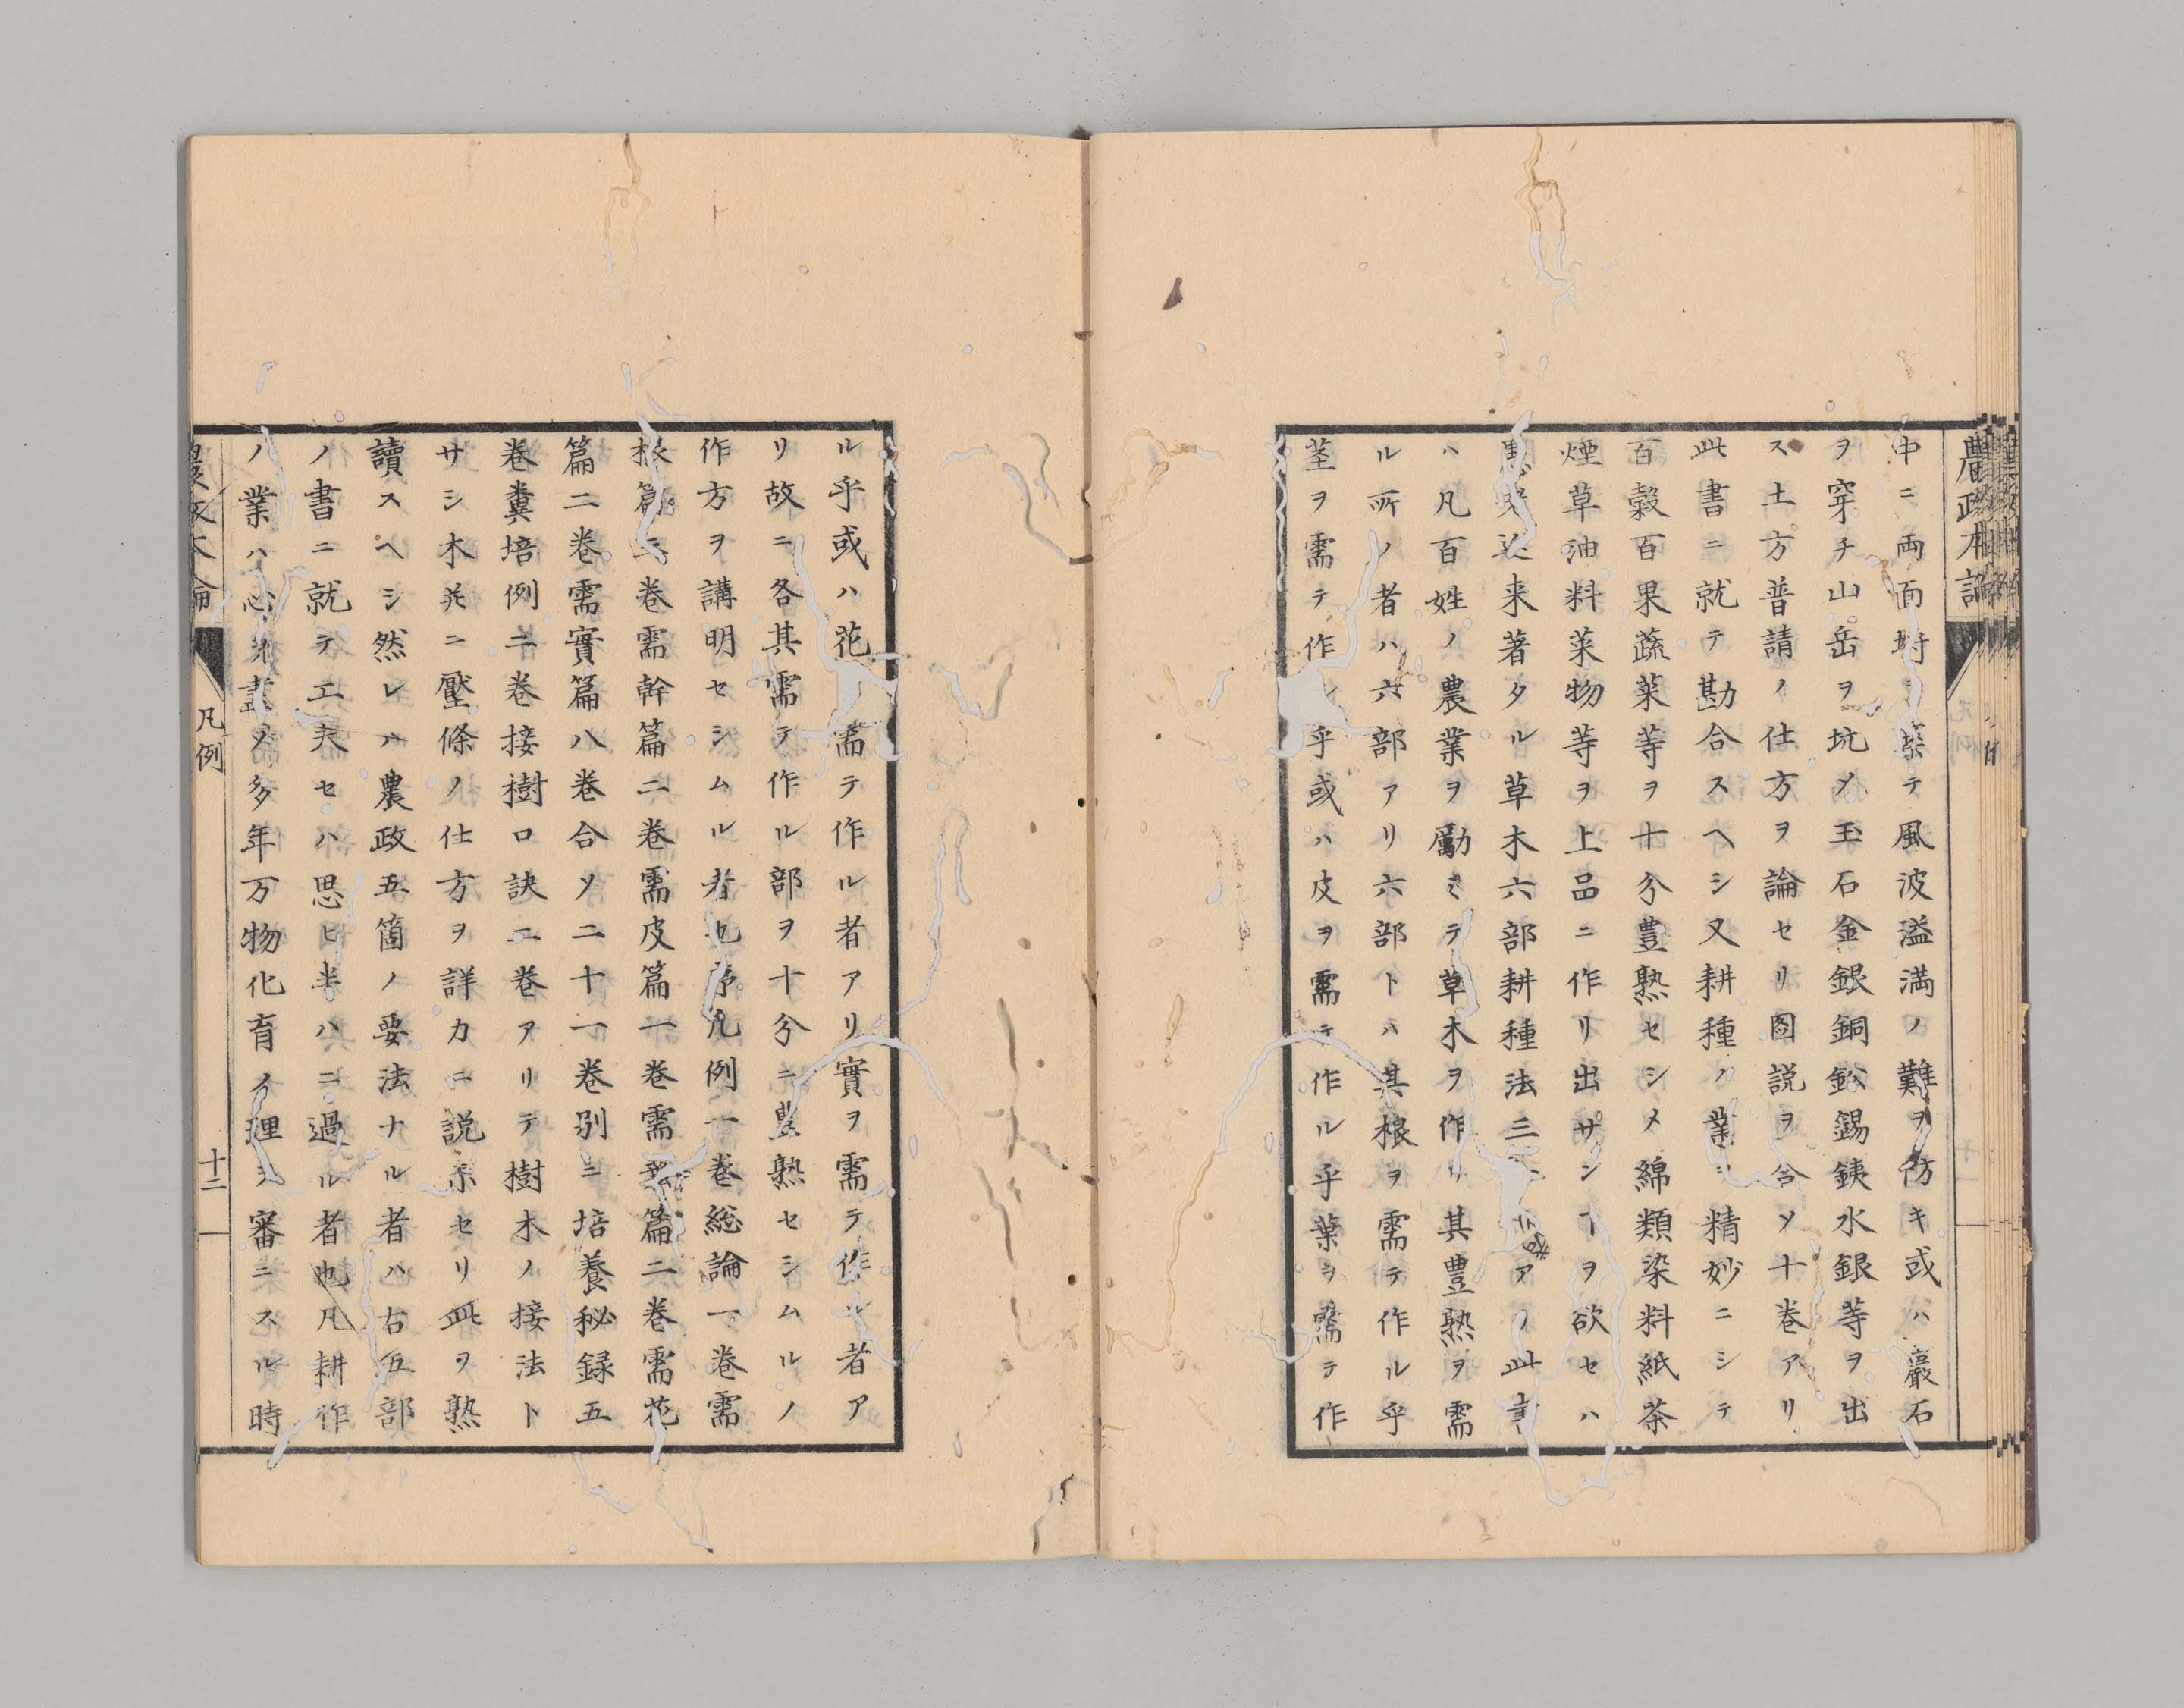 農政本論
中ニ両面塒ヲ築テ風波溢満ノ難ヲ防キ或ハ巖石
ヲ穿チ山岳ヲ坑メ玉石金銀銅鈆錫銕水銀等ヲ出
ス土方普請ノ仕方ヲ論セリ圖説ヲ合ソ十巻アリ
此書ニ就テ勘合スヘシ又耕種ノ業ヲ精妙ニシテ
百穀百果蔬菜等ヲ十分豊熟セシメ綿類染料紙茶
煙草油料菜物等ヲ上品ニ作リ出サンヿヲ欲セハ
来著タル草木六部耕種法三アリ此書
ハ凡百姓ノ農業ヲ勵ミテ草木ヲ作リ其豊熟ヲ需
ル所ノ者ハ六部アリ六部トハ其根ヲ需テ作ル乎
茎ヲ需テ作ル乎或ハ皮ヲ需テ作ル乎葉ヲ需テ作
ル乎或ハ花ヲ需テ作ル者アリ實ヲ需テ作ル者ア
リ故ニ各其需テ作ル部ヲ十分ニ豊熟セシムルノ
作方ヲ講明セシムル者也序凡例一巻総論一巻需
根篇二巻需幹篇二巻需皮篇一巻需葉篇二巻需花
篇二巻需實篇八巻合ソ二十一巻別ニ培養秘録五
巻糞培例二巻接樹口訣二巻アリテ樹木ノ接法ト
サシ木并ニ壓條ノ仕方ヲ詳カニ説示セリ此ヲ熟
讀スヘシ然レハ農政五箇ノ要法ナル者ハ右五部
ノ書ニ就テ工夫セハ思ヒ半ハニ過ル者也凡耕作
ノ業ハ心氣盡ソ多年万物化育ノ理ヲ審ニスル時
農政本論
凡例
十二